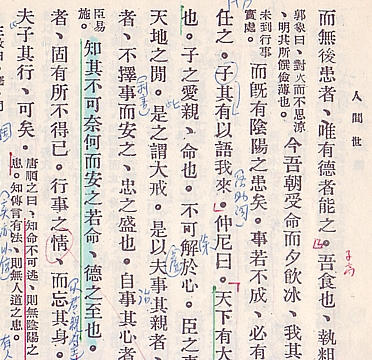 人間世
而無後患者、唯有德者能之。吾食也、執粗
郭象曰、對火而不思涼
、明其所饌儉薄也。
今吾朝受命而夕飲冰、我其
未到行事
實處。
而既有陰陽之患矣。事若不成、必有
任之。子其有以語我來。仲尼曰。天下有大
也。子之愛親、命也。不可解於心。臣之事
天地之間。是之謂大戒。是以夫事其親者、
者、不擇事而安之、忠之盛也。自事其心者
臣易
施。
知其不可奈何而安之若命、德之至也。
者、固有所不得已。行事之情、而忘其身。
夫子其行、可矣。
唐順之曰、知命不可逃、則無陰陽之
患。知傳言有法、則無人道之患。